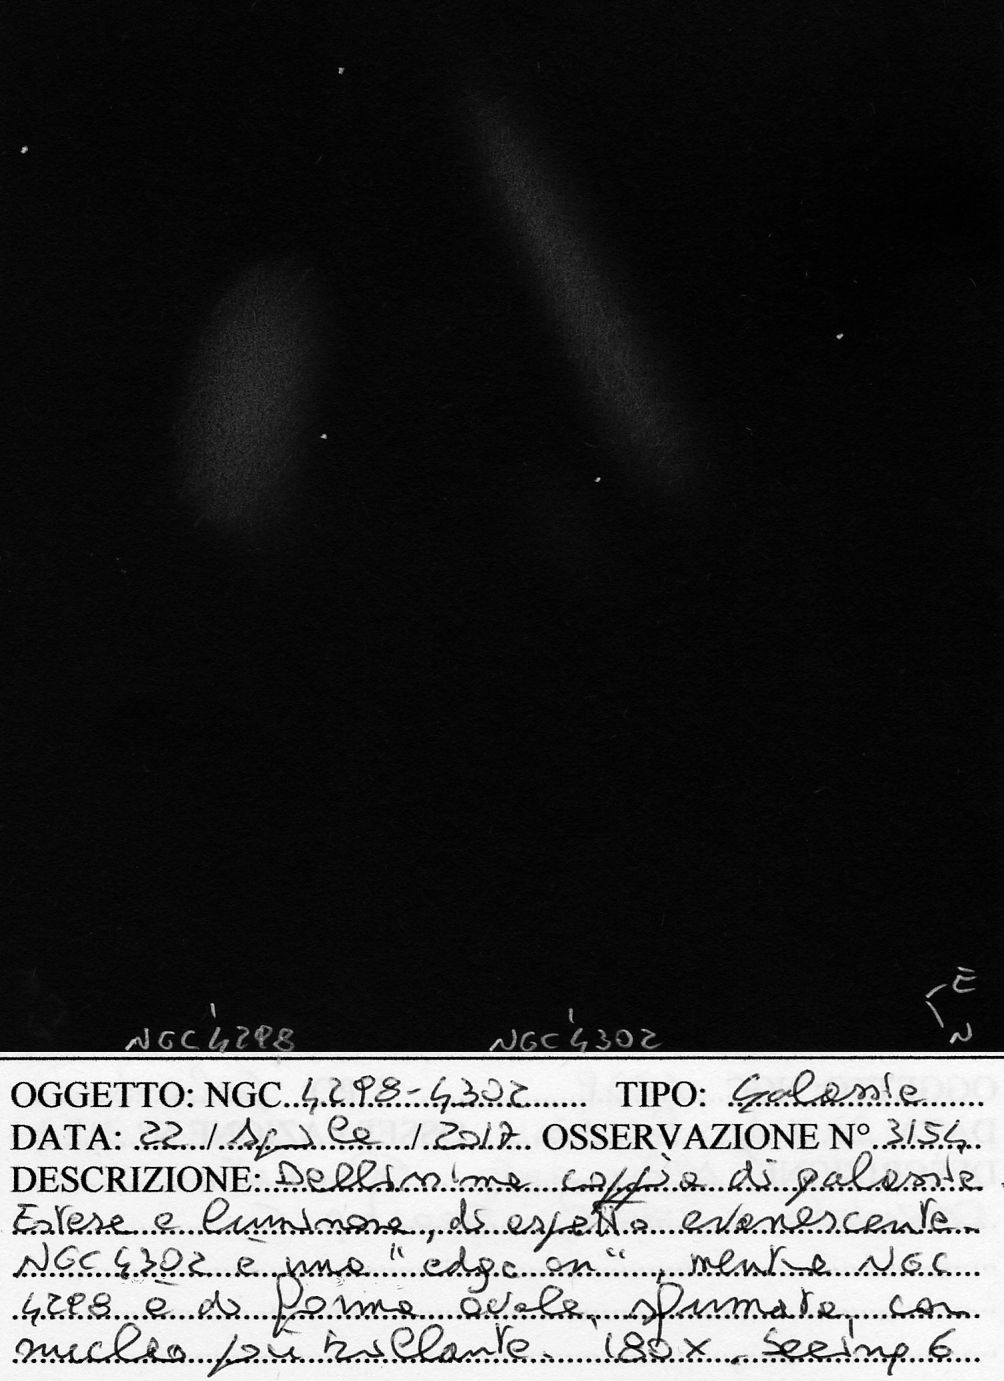 E
N
NGC 4298 NGC 4302
OGGETTO: NGC 4298-4302 TIPO: Galassie
DATA: 22 / Aprile / 2017 OSSERVAZIONE N° 3154
DESCRIZIONE: Bellissima coppia di galassie
Estese e luminose, di aspetto evanescente.
NGC 4302 è una "edge on", mentre NGC
4298 è di forma ovale, sfumata, con
nucleo più brillante. 180x. Seeing 6